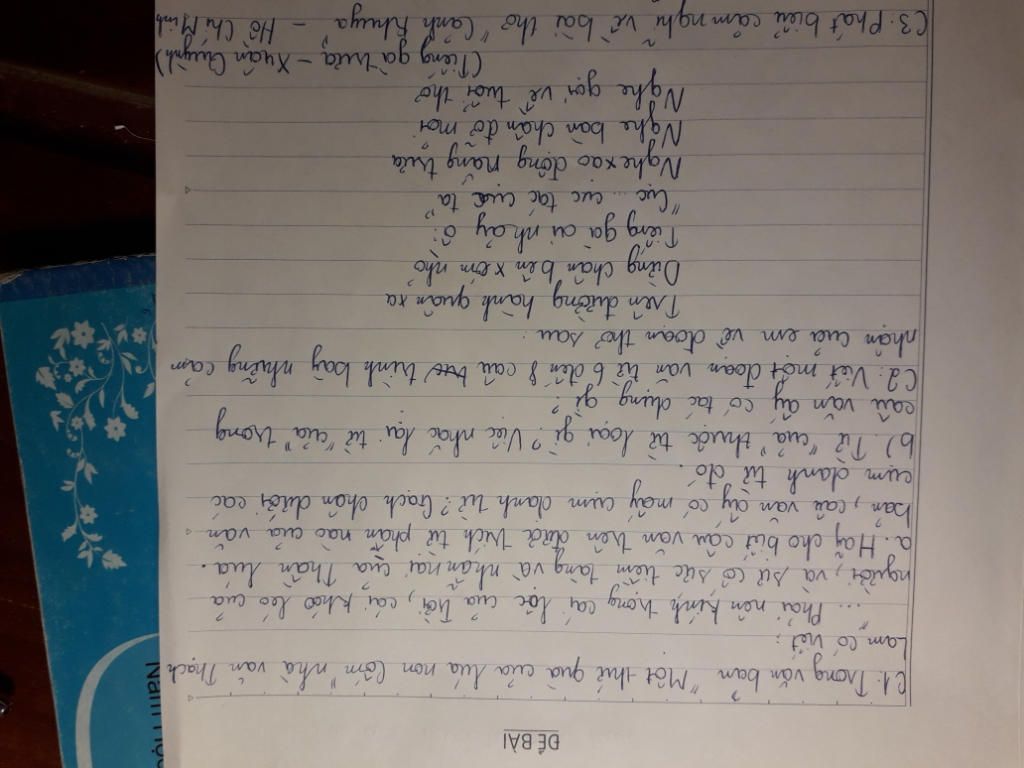 ĐỀ BÀI
C1: Trong văn bản "Một thứ quà của lúa non Cốm" nhà văn Thạch
Lam có viết:
"... Phải nên kính trọng cái lộc của Trời, cái khéo léo của
người, và sự cố sức tiềm tàng và nhẫn nại của Thần Lúa.
a. Hãy cho biết câu văn trên được trích từ phần nào của văn
bản, câu văn ấy có mấy cụm danh từ? Gạch chân dưới các
cụm danh từ đó.
b) Từ "của" thuộc từ loại gì? Việc nhắc lại từ "của" trong
câu văn ấy có tác dụng gì?
C2: Viết một đoạn văn từ 6 đến 8 câu trình bày những cảm
nhận của em về đoạn thơ sau:
Trên đường hành quân xa
Dừng chân bên xóm nhỏ
Tiếng gà ai nhảy ổ:
"Cục ... cục tác cục ta"
Nghe xao động nắng trưa
Nghe bàn chân đỡ mỏi
Nghe gọi về tuổi thơ
(Tiếng gà trưa - Xuân Quỳnh)
C3: Phát biểu cảm nghĩ về bài thơ "Cảnh khuya" - Hồ Chí Minh